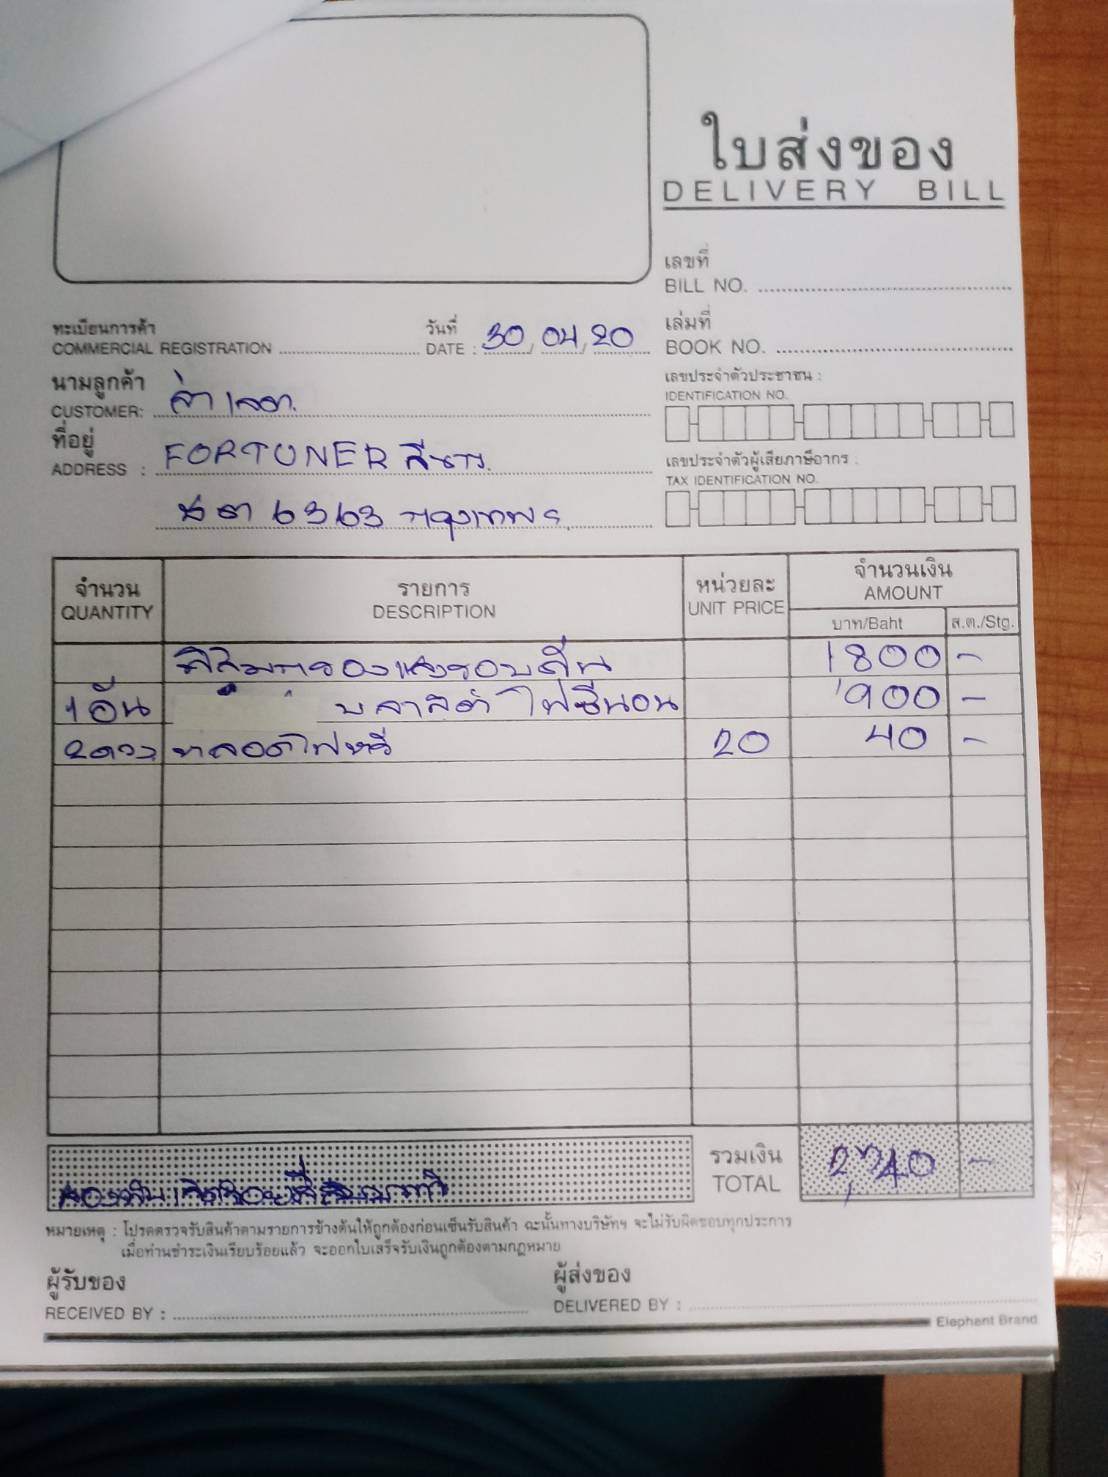 ใบส่งของ
DELIVERY BILL
เลขที่
BILL NO.
ทะเบียนการค้า
COMMERCIAL REGISTRATION
วันที่
DATE : 30, 04, 20
เล่มที่
BOOK NO.
นามลูกค้า
CUSTOMER:
เลขประจำตัวประชาชน :
IDENTIFICATION NO.
ที่อยู่
ADDRESS : FORTUNER สีขาว.
6363 กรุงเทพฯ
เลขประจำตัวผู้เสียภาษีอากร :
TAX IDENTIFICATION NO.
จำนวน
QUANTITY
รายการ
DESCRIPTION
หน่วยละ
UNIT PRICE
จำนวนเงิน
AMOUNT
บาท/Baht ส.ต./Stg.
ฟิล์มกรองแสงรอบคัน 1800 -
1 อัน บลาสต์ ไฟซีนอน 900 -
2 ดวง หลอดไฟหรี่ 20 40 -
รวมเงิน
TOTAL
2,740 -
สองพันเจ็ดร้อยสี่สิบบาท
หมายเหตุ : โปรดตรวจรับสินค้าตามรายการข้างต้นให้ถูกต้องก่อนเซ็นรับสินค้า ฉะนั้นทางบริษัทฯ จะไม่รับผิดชอบทุกประการ
เมื่อท่านชำระเงินเรียบร้อยแล้ว จะออกใบเสร็จรับเงินถูกต้องตามกฎหมาย
ผู้รับของ
RECEIVED BY :
ผู้ส่งของ
DELIVERED BY :
Elephant Brand